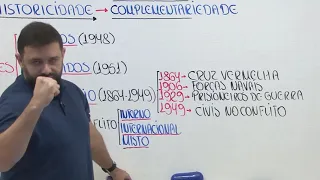 HISTORICIDADE → COMPLEMENTARIEDADE
DOS (1948)
ES ADOS (1951)
1864 → CRUZ VERMELHA
1906 → FORÇAS NAVAIS
IO (1864-1949) 1929 → PRISIONEIROS DE GUERRA
1949 → CIVIS NO CONFLITO
FLITO INTERNO
INTERNACIONAL
MISTO